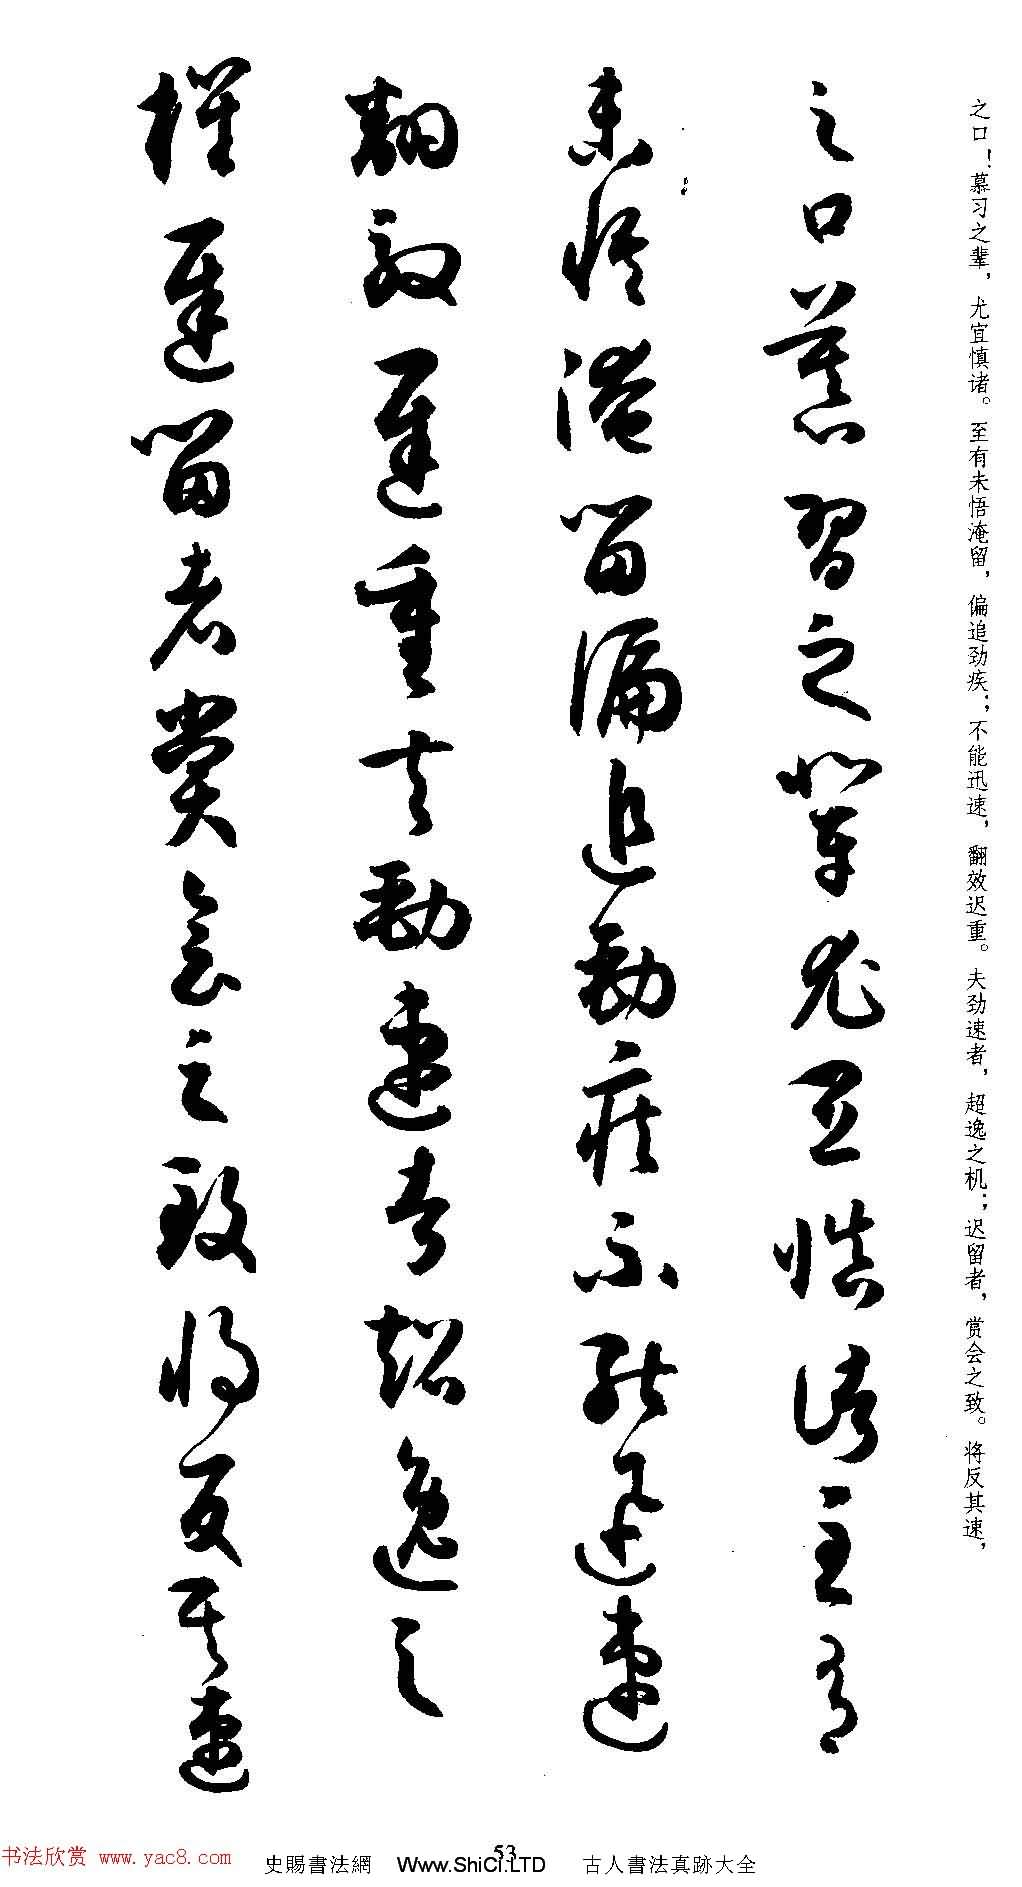 之口！慕习之辈，尤宜慎诸。至有未悟淹留，偏追劲疾；不能迅速，翻效迟重。夫劲速者，超逸之机；迟留者，赏会之致。将反其速，
之口慕習之輩尤宜慎諸至有
未悟淹留偏追勁疾不能迅速
翻效遲重夫勁速者超逸之
機遲留者賞會之致將反其速
53
书法欣赏 www.yac8.com
史賜書法網 Www.ShiCi.LTD 古人書法真跡大全